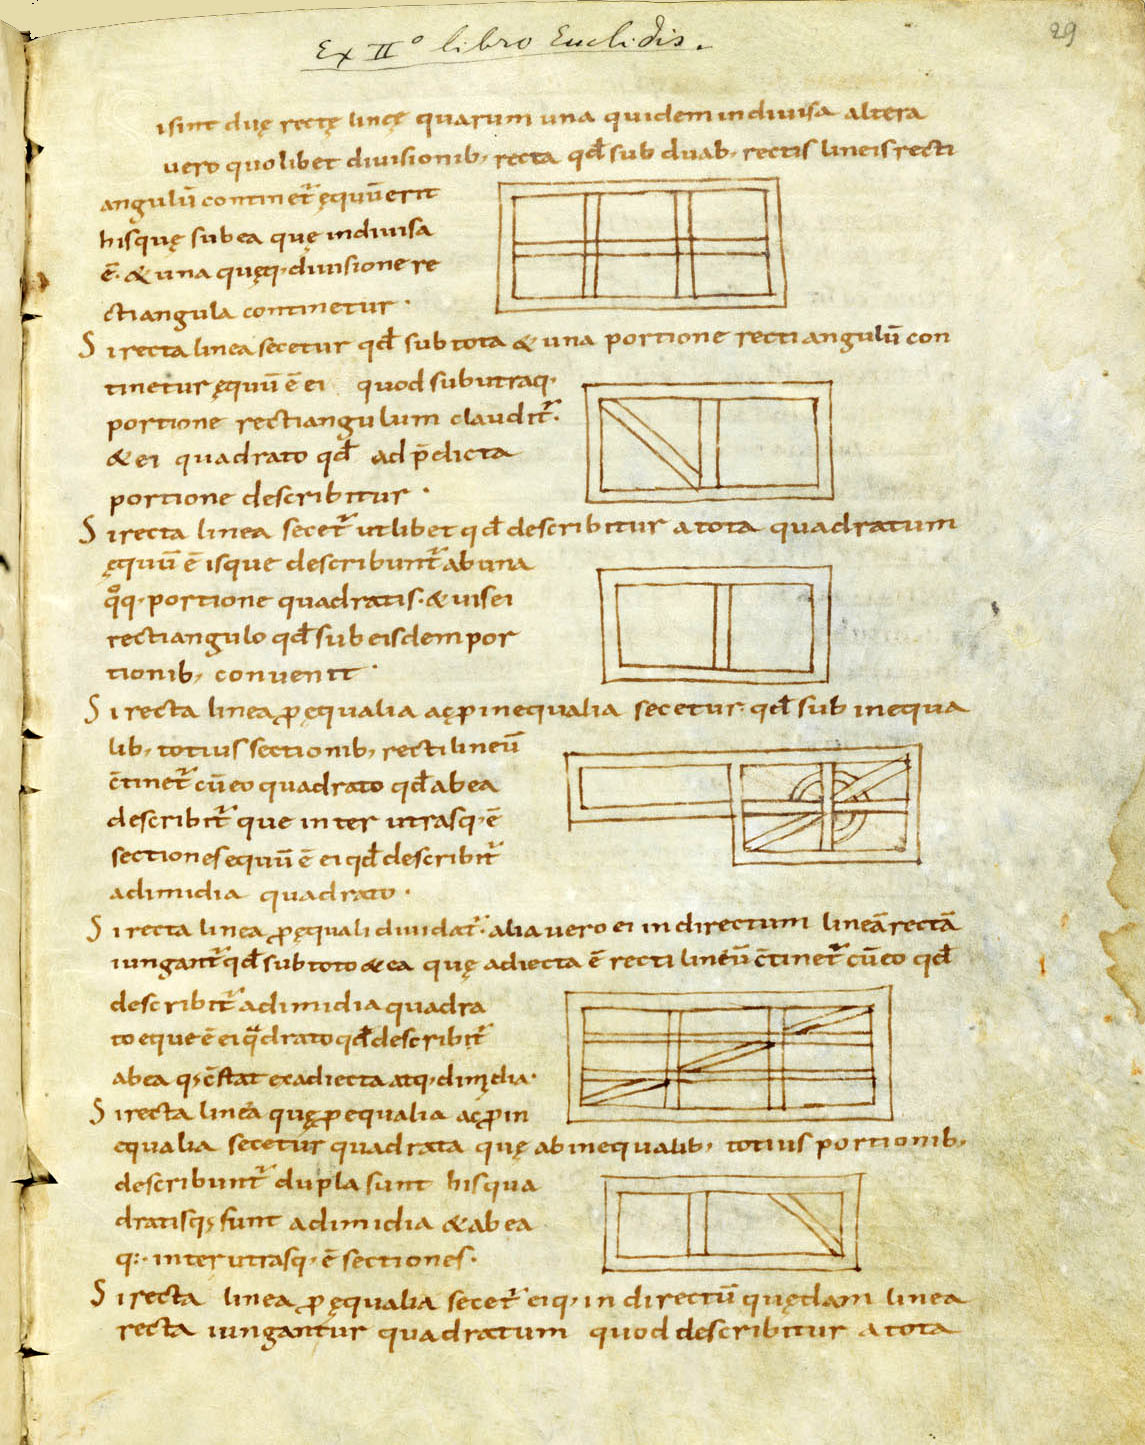 Ex IIº libro Euclidis.
29
isint duę rectę lineę quarum una quidem indiuisa altera
uero quolibet diuisionib; recta qđ sub duab; rectis lineis recti
angulū continet᷑ ęquū erit
hisquę sub ea quę indiuisa
ē. & una quęq; diuisione re
ctiangula continetur.
Si recta linea secetur qđ sub tota & una portione rectiangulū con
tinetur ęquū ē ei quod sub utraq;
portione rectiangulum claudit᷑.
& ei quadrato qđ ad p̄dicta
portione describitur.
Si recta linea secet᷑ utlibet qđ describitur a tota quadratum
ęquū ē isque describunt᷑ ab una
qͦq; portione quadratis. & uis ei
rectiangulo qđ sub eisdem por
tionib; conuenit.
Si recta linea ꝓ ęqualia ac ꝑ inequalia secetur. qđ sub inequa
lib; totius sectionib; rectilineū
c̄tinet᷑ cū eo quadrato qđ ab ea
describit᷑ que inter utrasq; ē
sectiones equū ē ei qđ describit᷑
a dimidia quadrato.
Si recta linea ꝓ ęquali diuidat᷑. alia uero ei in directum lineā rectā
iungant᷑ qđ sub toto & ea quę adiecta ē recti lineū c̄tinet᷑ cū eo qđ
describit᷑ a dimidia quadra
to eque ē ei qͣdrato qđ describit᷑
ab ea q; c̄stat ex adiecta atq; dimidia.
Si recta linea quę ꝑ equalia ac ꝓ in
equalia secetur quadrata quę ab inequalib; totius portionib;
describunt᷑ dupla sunt hisqua
dratisq; sunt a dimidia & ab ea
q:. inter utrasq; ē sectiones.
Si recta linea ꝓ ęqualia secet᷑ eiq; in directū quędam linea
recta iungantur quadratum quod describitur a tota